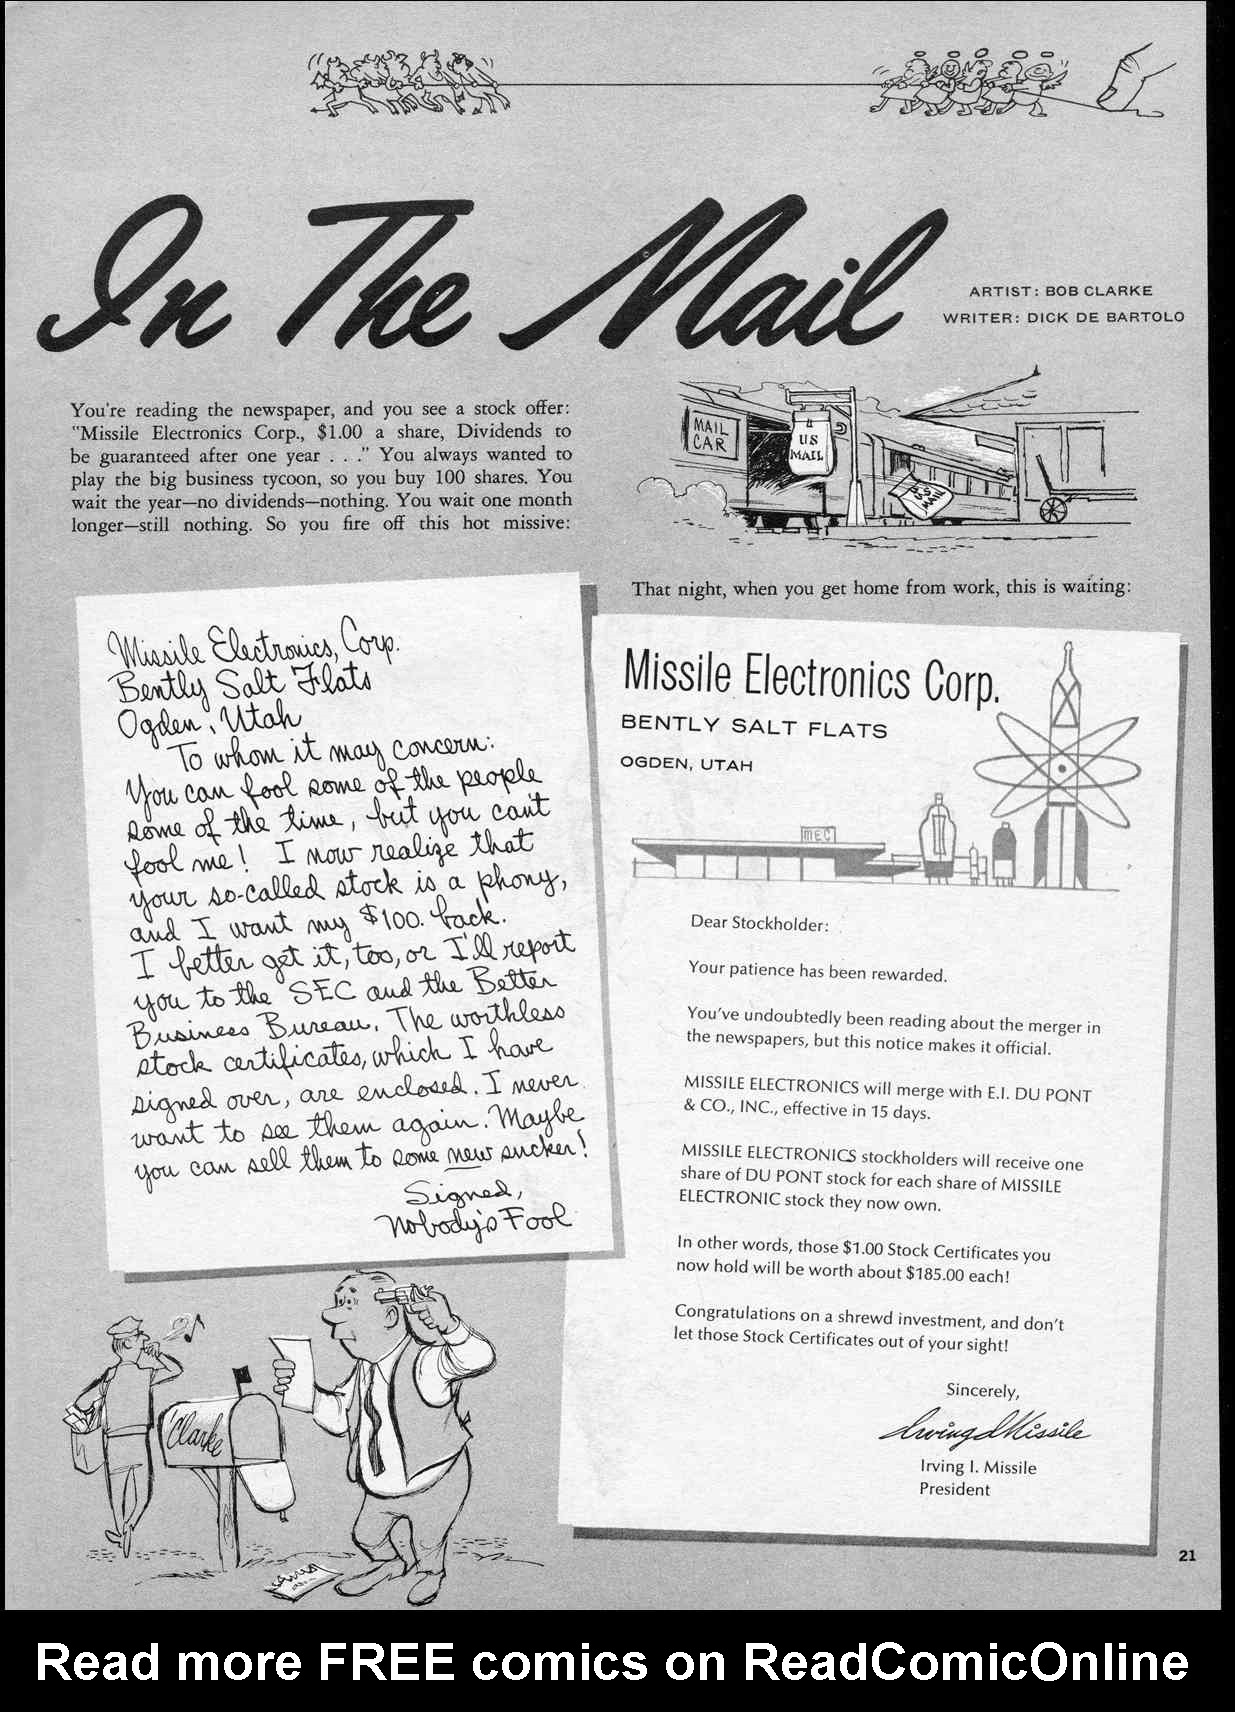 In The Mail
ARTIST: BOB CLARKE
WRITER: DICK DE BARTOLO
You're reading the newspaper, and you see a stock offer:
"Missile Electronics Corp., $1.00 a share, Dividends to
be guaranteed after one year . . ." You always wanted to
play the big business tycoon, so you buy 100 shares. You
wait the year—no dividends—nothing. You wait one month
longer—still nothing. So you fire off this hot missive:
MAIL
CAR
US
MAIL
U.S.
MAIL
Missile Electronics, Corp.
Bently Salt Flats
Ogden, Utah
To whom it may concern:
You can fool some of the people
some of the time, but you can't
fool me! I now realize that
your so-called stock is a phony,
and I want my $100. back.
I better get it, too, or I'll report
you to the SEC and the Better
Business Bureau. The worthless
stock certificates, which I have
signed over, are enclosed. I never
want to see them again. Maybe
you can sell them to some new sucker!
Signed,
Nobody's Fool
That night, when you get home from work, this is waiting:
Missile Electronics Corp.
BENTLY SALT FLATS
OGDEN, UTAH
MEC
Dear Stockholder:
Your patience has been rewarded.
You've undoubtedly been reading about the merger in
the newspapers, but this notice makes it official.
MISSILE ELECTRONICS will merge with E.I. DU PONT
& CO., INC., effective in 15 days.
MISSILE ELECTRONICS stockholders will receive one
share of DU PONT stock for each share of MISSILE
ELECTRONIC stock they now own.
In other words, those $1.00 Stock Certificates you
now hold will be worth about $185.00 each!
Congratulations on a shrewd investment, and don't
let those Stock Certificates out of your sight!
Sincerely,
Irving I Missile
Irving I. Missile
President
Clarke
21
Read more FREE comics on ReadComicOnline